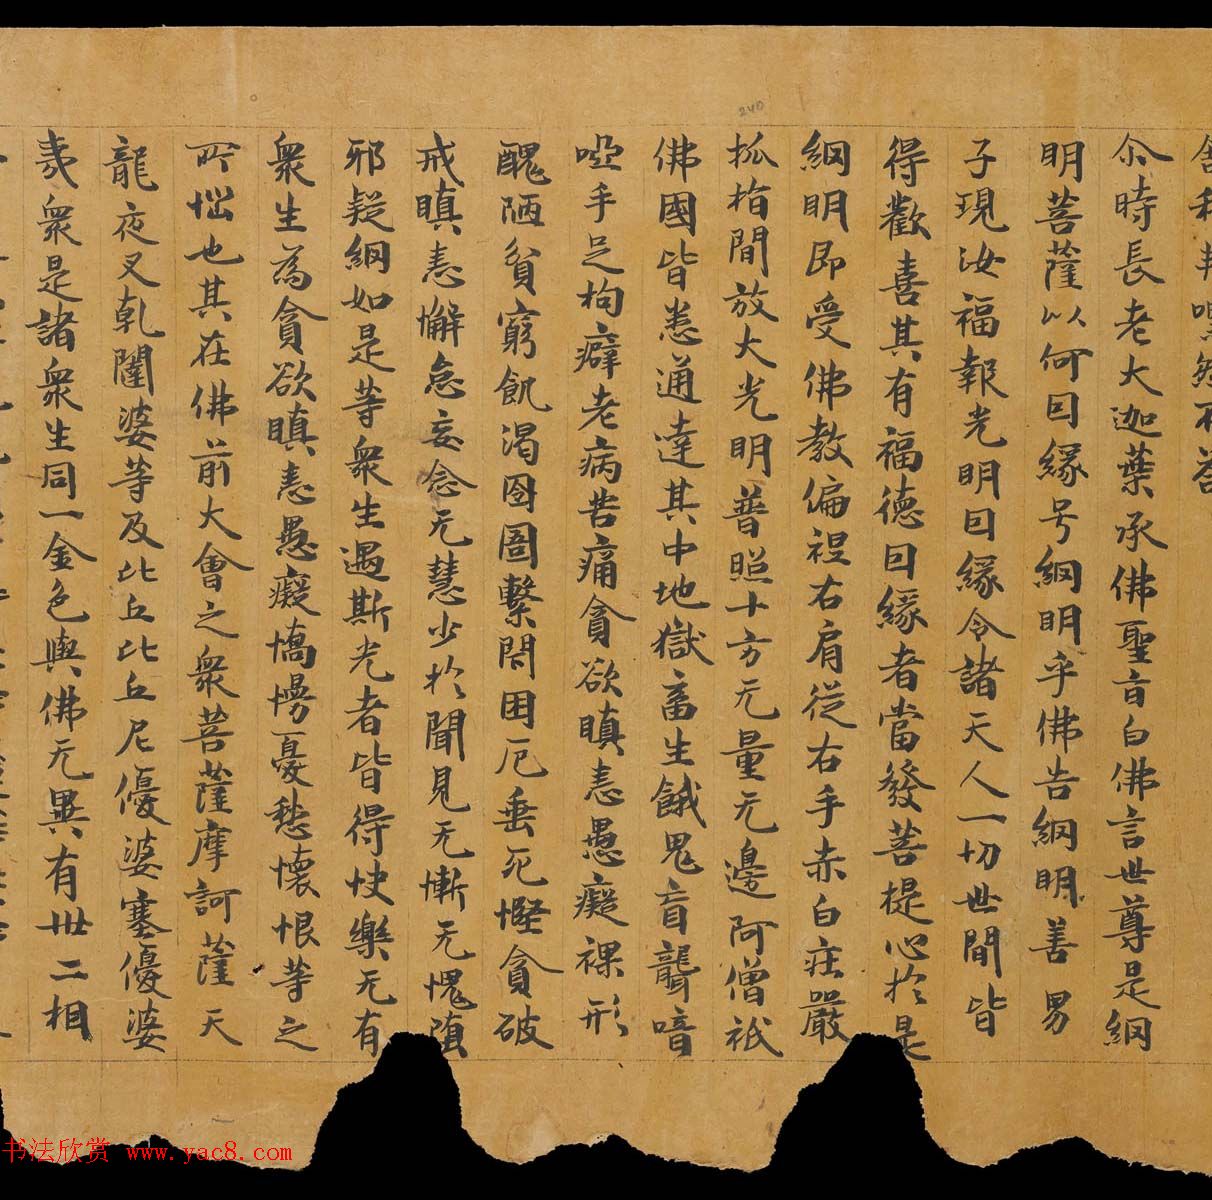 尒時長老大迦葉承佛聖旨白佛言世尊是網
明菩薩以何因緣号網明乎佛告網明善男
子現汝福報光明因緣令諸天人一切世間皆
得歡喜其有福德因緣者當發菩提心於是
網明即受佛教偏袒右肩從右手赤白莊嚴
抓指間放大光明普照十方无量无邊阿僧祇
佛國皆悉通達其中地獄畜生餓鬼盲聾喑
啞手足拘癖老病苦痛貪欲瞋恚愚癡裸形
醜陋貧窮飢渴囹圄繫閉困厄垂死慳貪破
戒瞋恚懈怠妄念无慧少於聞見无慚无愧墮
邪疑網如是等衆生遇斯光者皆得快樂无有
衆生為貪欲瞋恚愚癡憍慢憂愁懷恨等之
所惱也其在佛前大會之衆菩薩摩訶薩天
龍夜叉乹闥婆等及比丘比丘尼優婆塞優婆
夷衆是諸衆生同一金色與佛无異有卅二相
书法欣赏 www.yac8.com
240